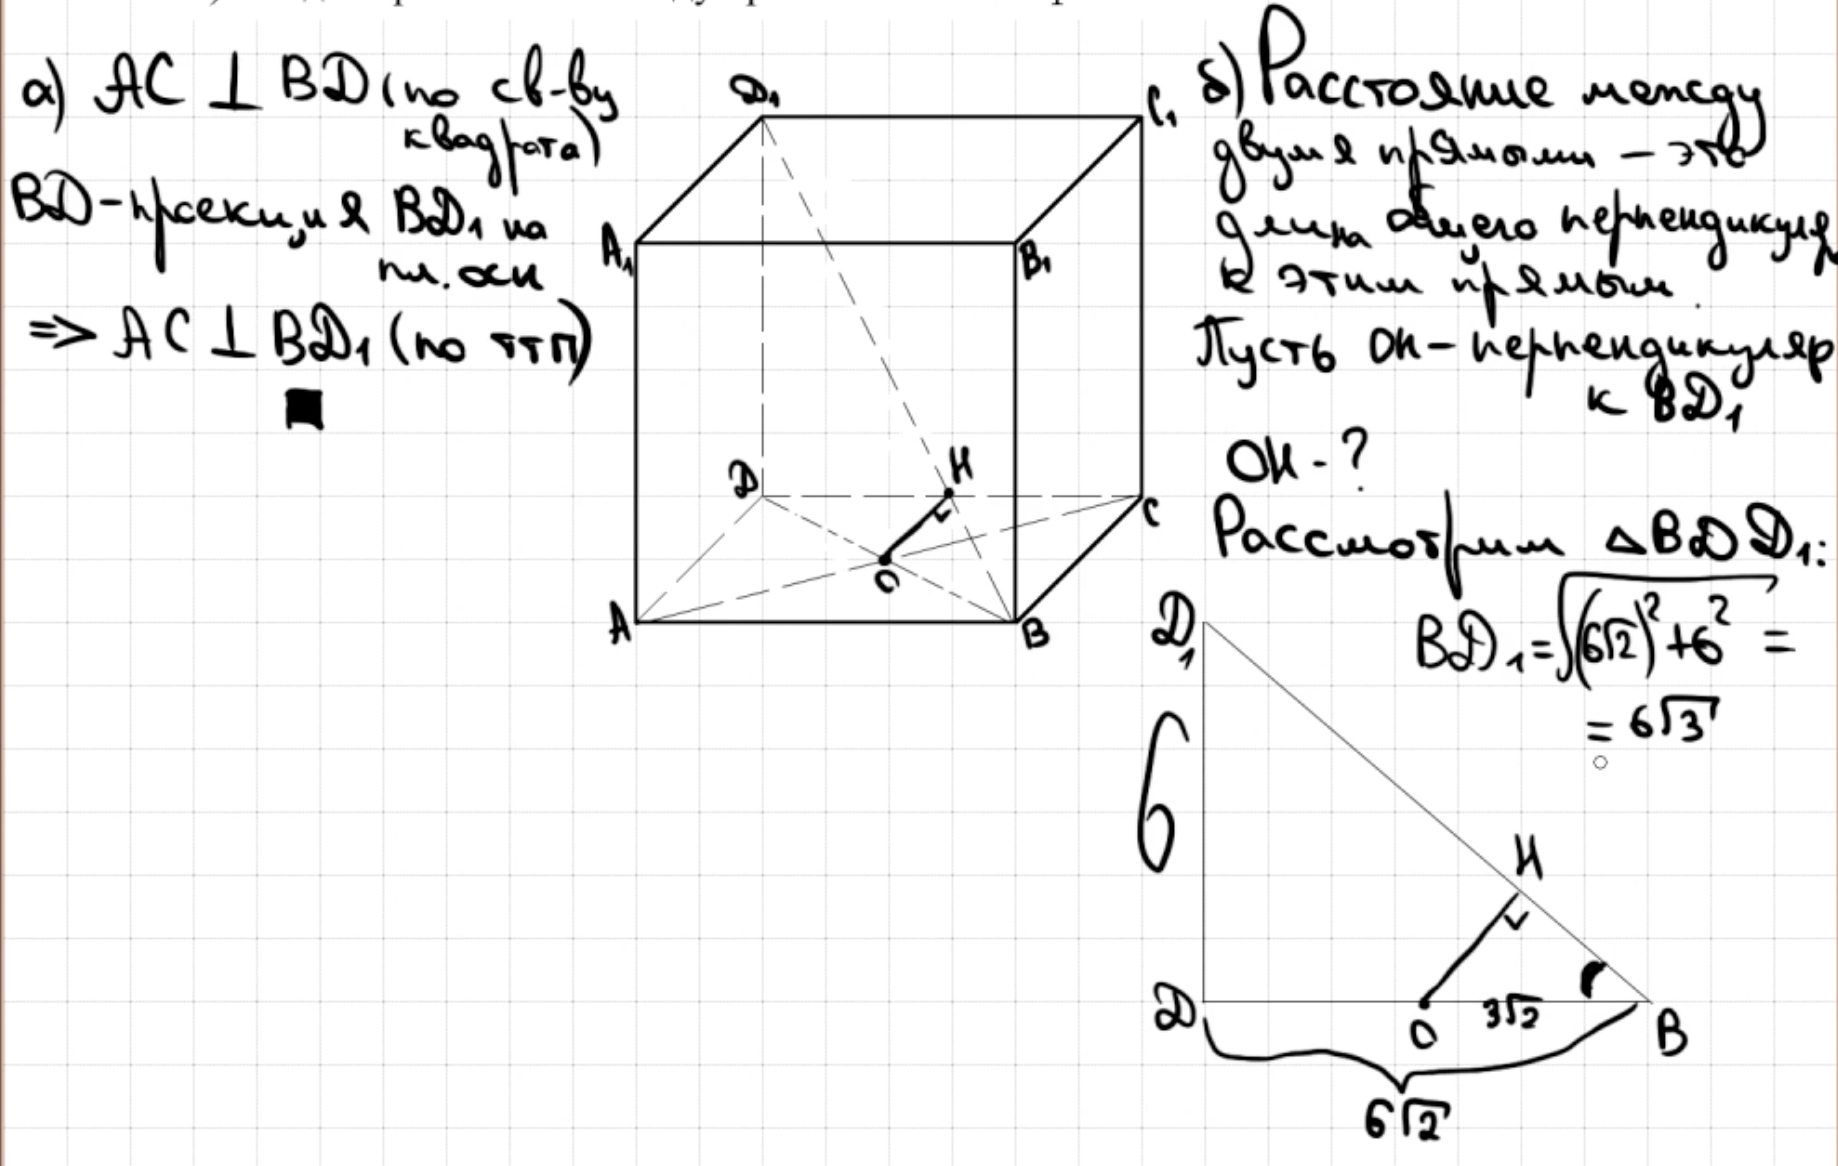 а) AC ⊥ BD (по св-ву
квадрата)
BD-проекция BD₁ на
пл. осн
=> AC ⊥ BD₁ (по ттп)
D₁
C₁
A₁
B₁
D
H
C
O
A
B
б) Расстояние между
двумя прямыми – это
длина общего перпендикуляр
к этим прямым.
Пусть OH – перпендикуляр
к BD₁
OH - ?
Рассмотрим △BDD₁:
BD₁ = √((6√2)² + 6²) =
= 6√3
D₁
6
H
D
O
3√2
B
6√2